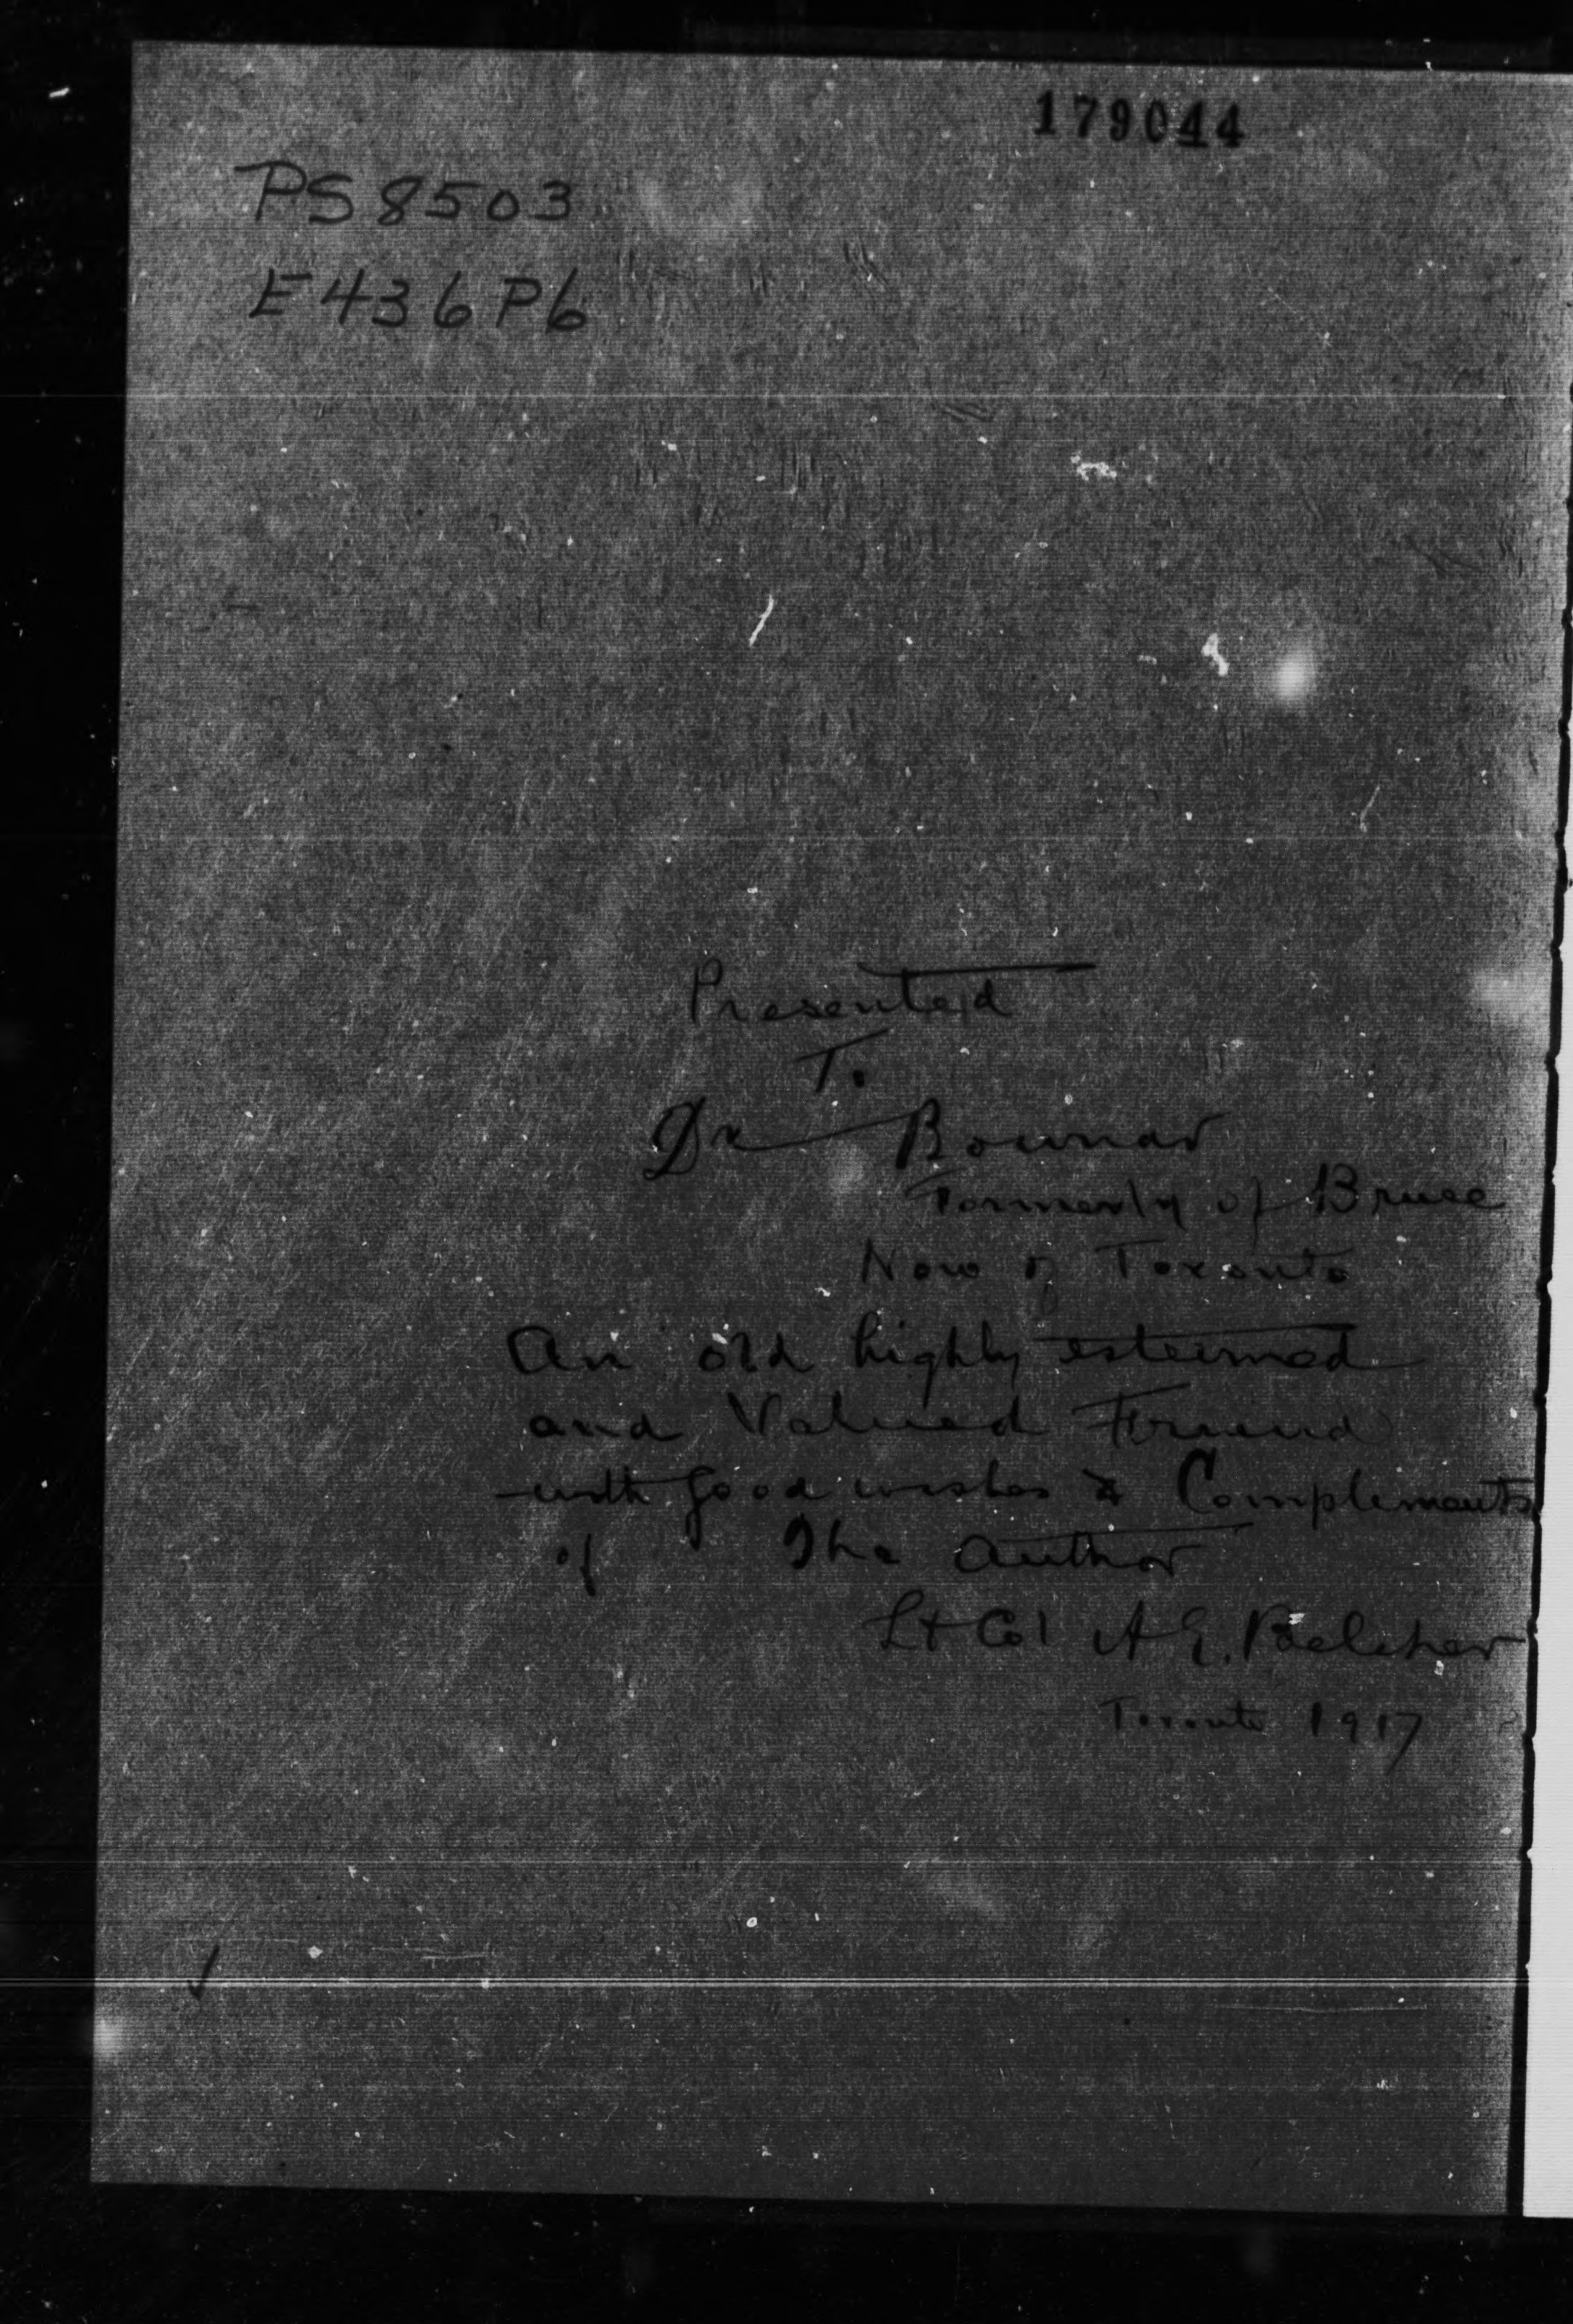 179044
PS8503
E436P6
Presented
To
Dr
Formerly of Bruce
Now of Toronto
An old highly esteemed
and Valued Friend
with good wishes & Complements
of The Author
Lt Col A E. Belcher
Toronto 1917